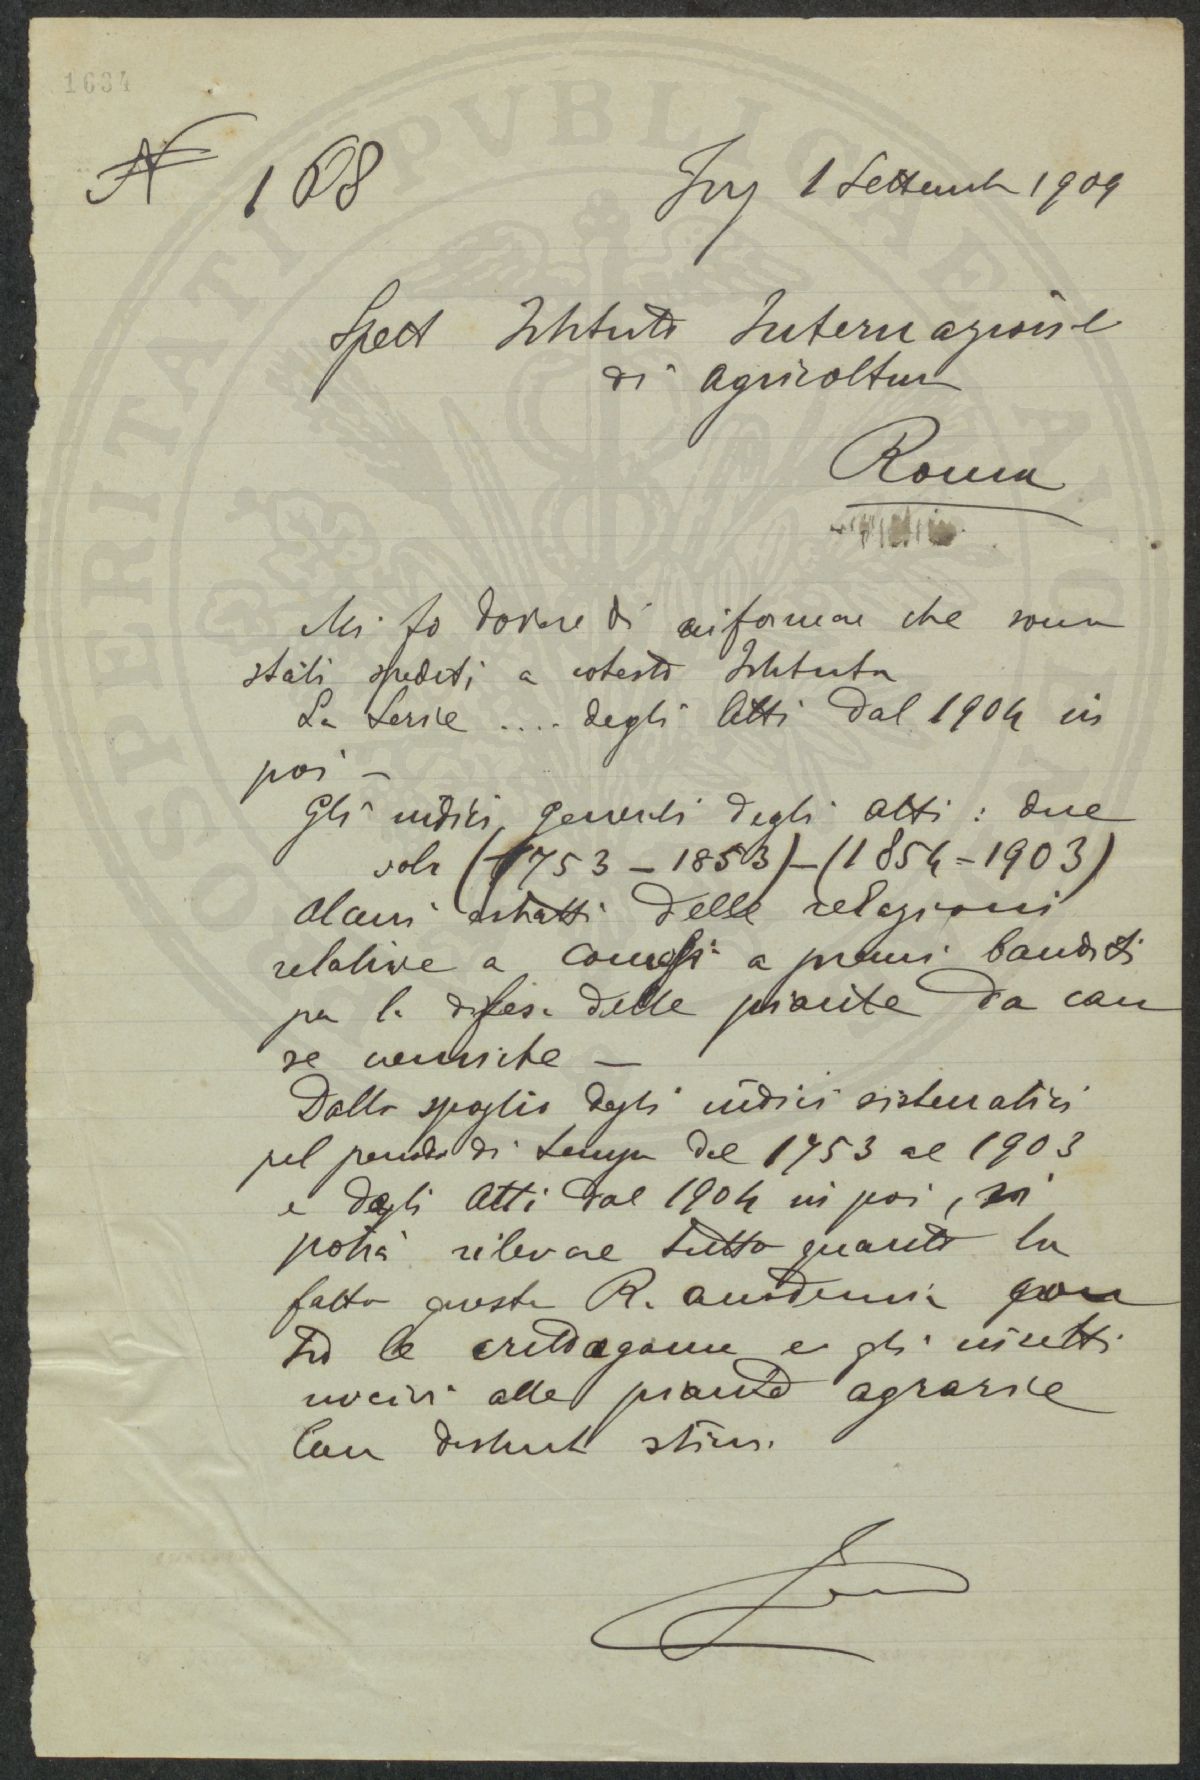 1634
N 168
1 Settemb 1909
Spett Istituto Internazionale
di Agricoltura
Roma
Mi fo dovere di informare che sono
stati spediti a cotesto Istituto
La Serie .... degli Atti dal 1904 in
poi –
Gli indici generali degli atti : due
voli (1753 – 1853) – (1854 – 1903)
Alcuni estratti delle relazioni
relative a concorsi a premi banditi
per la difesa delle piante da cau
se nemiche –
Dallo spoglio degli indici sistematici
pel periodo di tempo dal 1753 al 1903
e degli Atti dal 1904 in poi, si
potrà rilevare tutto quanto ha
fatto questa R. accademia
le crittogame e gli insetti
nocivi alle piante agrarie
Con distint stima
PROSPERITATI PVBLICAE